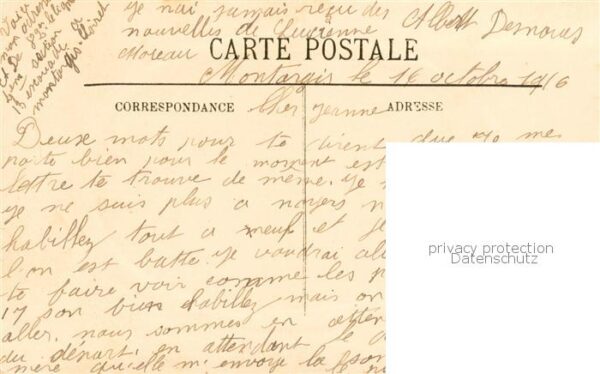 je n'ai jamais reçu des
nouvelles de Lucienne
Moreau
Albert Desnoues
Voici
mon adresse
82 de ligne
section
montargis loiret
CARTE POSTALE
Montargis le 16 octobre 1916
CORRESPONDANCE
ADRESSE
Cher jeanne
Deux mots pour te dirent que je me
porte bien pour le moment est
lettre te trouve de même. je
je ne suis plus a noyers
habillez tout a neuf et je
l'on est batte. je voudrai
te faire voir comme les
17 son bien habillez mais on
aller. nous sommes en
du départ. en attendant le
mère qu'elle m'envoye la
privacy protection
Datenschutz